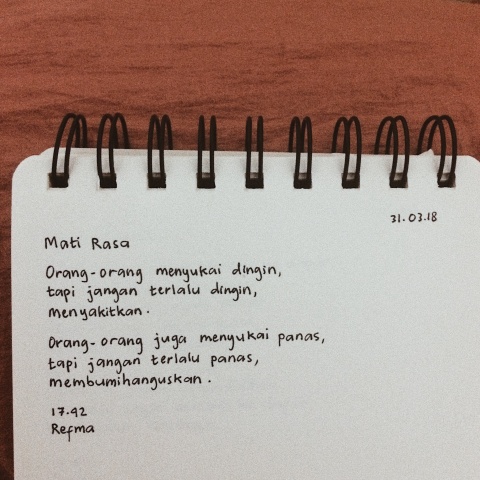 31.03.18
Mati Rasa
Orang-orang menyukai dingin,
tapi jangan terlalu dingin,
menyakitkan.
Orang-orang juga menyukai panas,
tapi jangan terlalu panas,
membumihanguskan.
17.42
Refma